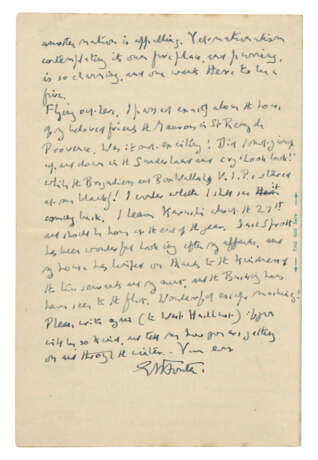 another nation is appalling. Yet nationalism
contemplating its own fireplace, and purring,
is so charming, and one wants there to be a
fire.
Flying out here, I passed exactly above the house
of my beloved friends the Maurons in St Remy de
Provence. Was it not exciting! Did I not jump
up and down in the Sunderland and cry 'Look Look!'
while the Brigadiers and V.I.P.s stared
at me blankly! I wonder whether I shall see it
coming back. I leave Karachi about the 27th
and should be home at the end of the year. Jack Sprott
has been wonderful looking after my affairs, and
my house has on thanks to the kindness of
the two servants and my aunt, and the Buckinghams
have seen to the flat. Wonderful escape machinery!
Please write again (to West Hackhurst) if you
will be so kind, and tell me how you are getting
on and through the winter. Your ever
EM Forster.